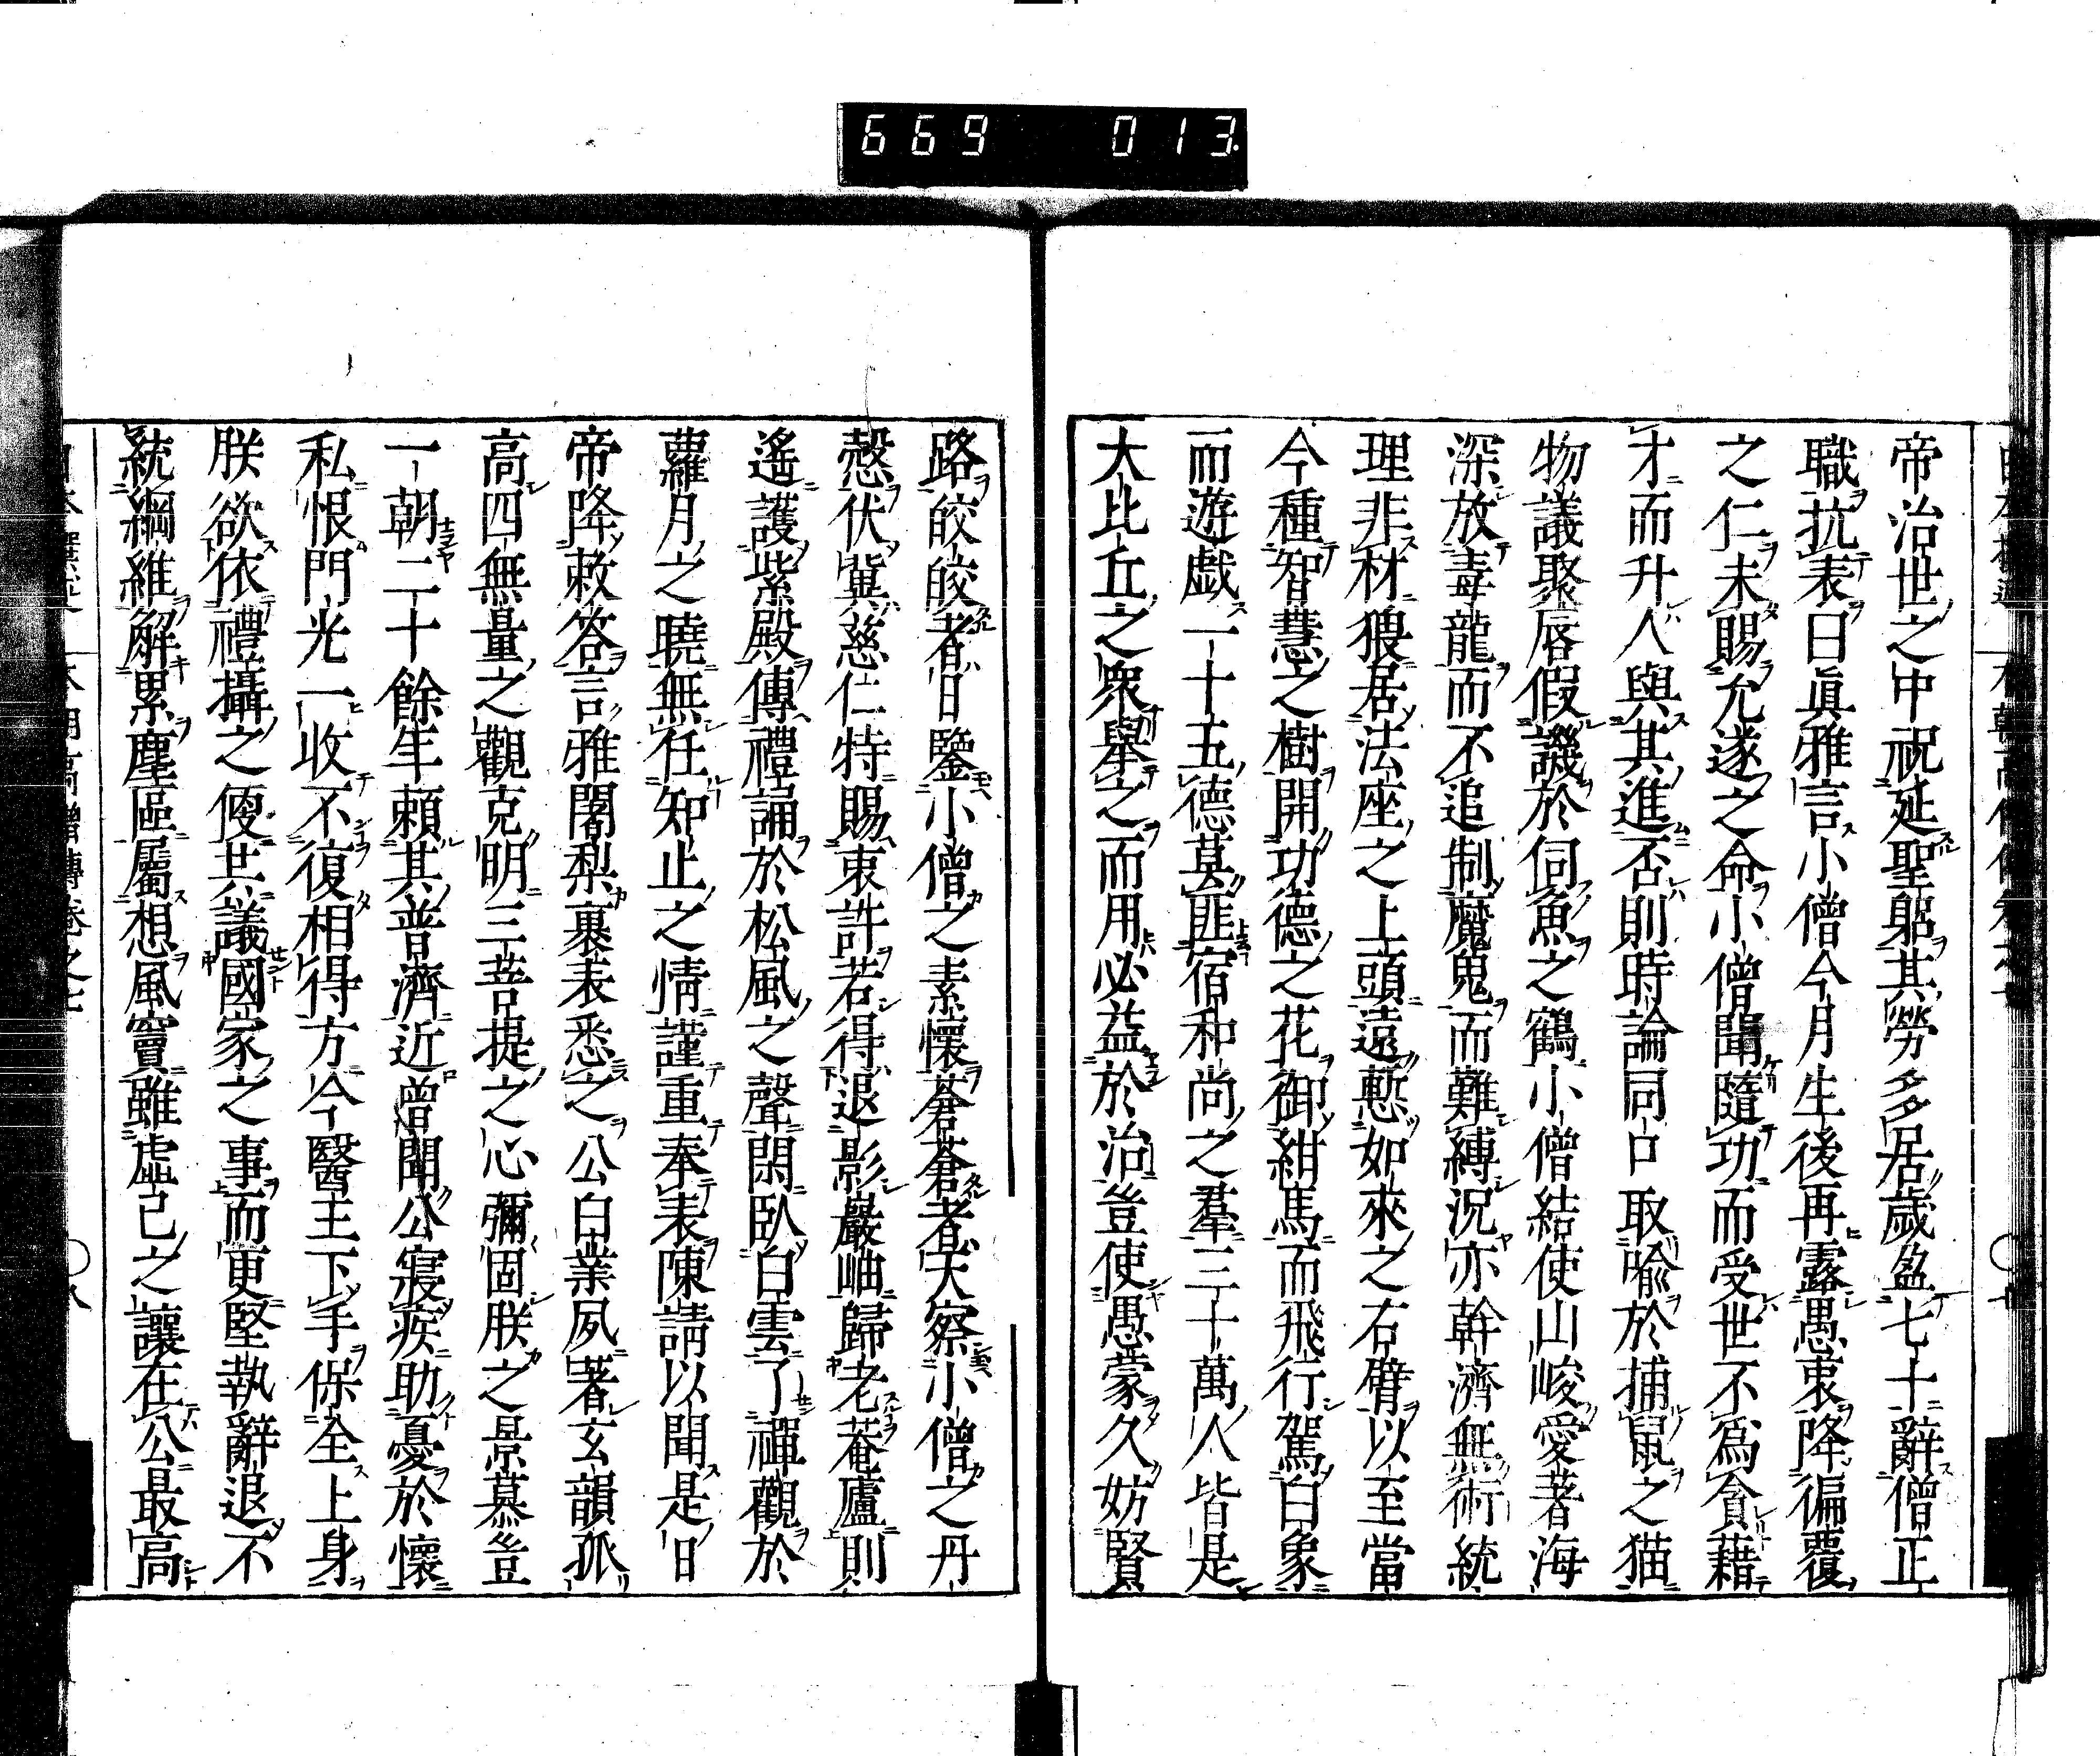 669 013
帝治世之中祝延聖躬其勞多居歲盈七十辭僧正
職抗表曰眞雅言小僧今月生後再露愚衷降徧覆
之仁未賜允遂之命小僧聞隨功而受世不爲貪藉
才而升人與其進否則時論同口取喩於捕鼠之猫
物議聚唇假譏於伺魚之鶴小僧結使山峻愛著海
深放毒龍而不追制魔鬼而難縛況亦幹濟無術統
理非材猥居法座之上頭遠慙如來之右臂以至當
今種智慧之樹開功德之花御紺馬而飛行駕白象
而遊戲一十五德莫匪宿和尚之羣三十萬人皆是
大比丘之衆舉之而用必益於治豈使愚蒙久妨賢
路皎皎者日鑒小僧之素懷蒼蒼者天察小僧之丹
慤伏冀慈仁特賜衷許若得退影巖岫歸老菴廬則
遙護紫殿傳禮誦於松風之聲閑臥白雲了禪觀於
蘿月之曉無任知止之情謹重奉表陳請以聞是日
帝降敕答言雅闍梨裹表悉之公白業夙著玄韻孤
高四無量之觀克明三菩提之心彌固朕之景慕豈
一朝二十餘年賴其普濟近曾聞公寢疾助憂於懷
私恨門光一收不復相得方今醫王下手保全上身
朕欲依禮攝之便共議國家之事而更堅執辭退不
統綱維解累塵區屬想風竇雖虛己之讓在公最高